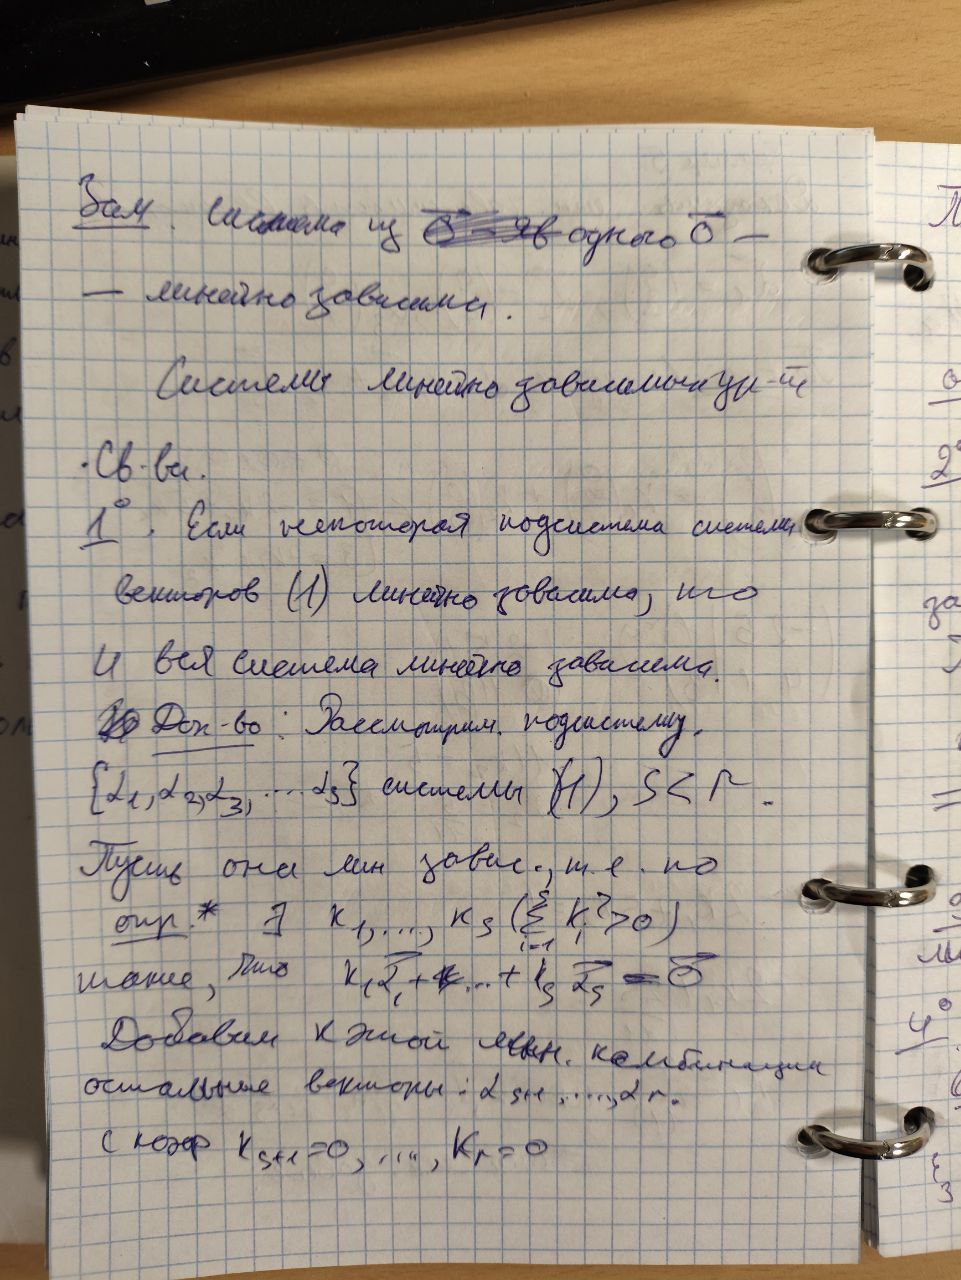 Зам. система из одного 0⃗ —
— линейно зависима.
Системы линейно зависимых ур-й
· Св-ва.
1°. Если некоторая подсистема системы
векторов (1) линейно зависима, то
и вся система линейно зависима.
Док-во: Рассмотрим. подсистему.
{α₁, α₂, α₃, .... αs} системы (1), s < r.
Пусть она лин завис., т.е. по
опр.* ∃ k₁, ..., ks (∑ᵢ₌₁ˢ kᵢ² > 0)
такие, что k₁α⃗₁ + ... + ksα⃗s = 0⃗
Добавим к этой лин. комбинации
остальные векторы: αs+1, ...., αr.
с коэф ks+1 = 0, ...., kr = 0